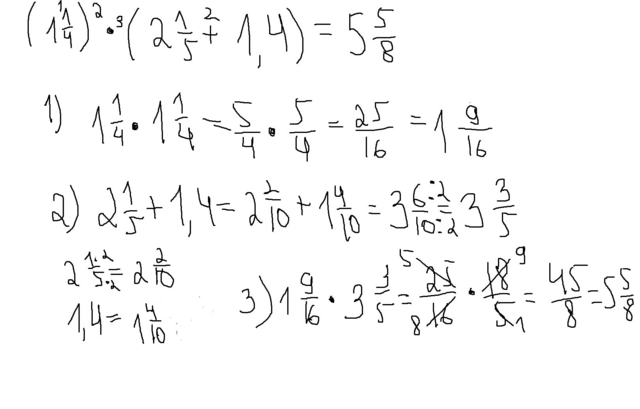 (1 1/4)² · ³ (2 1/5 +² 1,4) = 5 5/8
1) 1 1/4 · 1 1/4 = 5/4 · 5/4 = 25/16 = 1 9/16
2) 2 1/5 + 1,4 = 2 2/10 + 1 4/10 = 3 6:2/10:2 = 3 3/5
2 1·2/5·2 = 2 2/10
1,4 = 1 4/10
3) 1 9/16 · 3 3/5 = 5 25/8 16 · 18 9/5 1 = 45/8 = 5 5/8